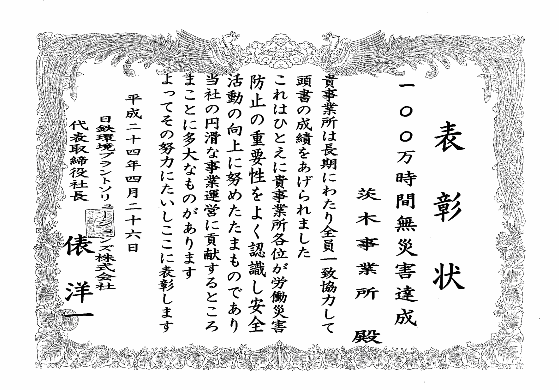 表彰状
一〇〇万時間無災害達成
茨木事業所 殿
貴事業所は長期にわたり全員一致協力して
頭書の成績をあげられました
これはひとえに貴事業所各位が労働災害
防止の重要性をよく認識し安全
活動の向上に努めたたまものであり
当社の円滑な事業運営に貢献するところ
まことに多大なものがあります
よってその努力にたいしここに表彰します
平成二十四年四月二十六日
日鉄環境プラントソリューションズ株式会社
代表取締役社長 俵 洋一